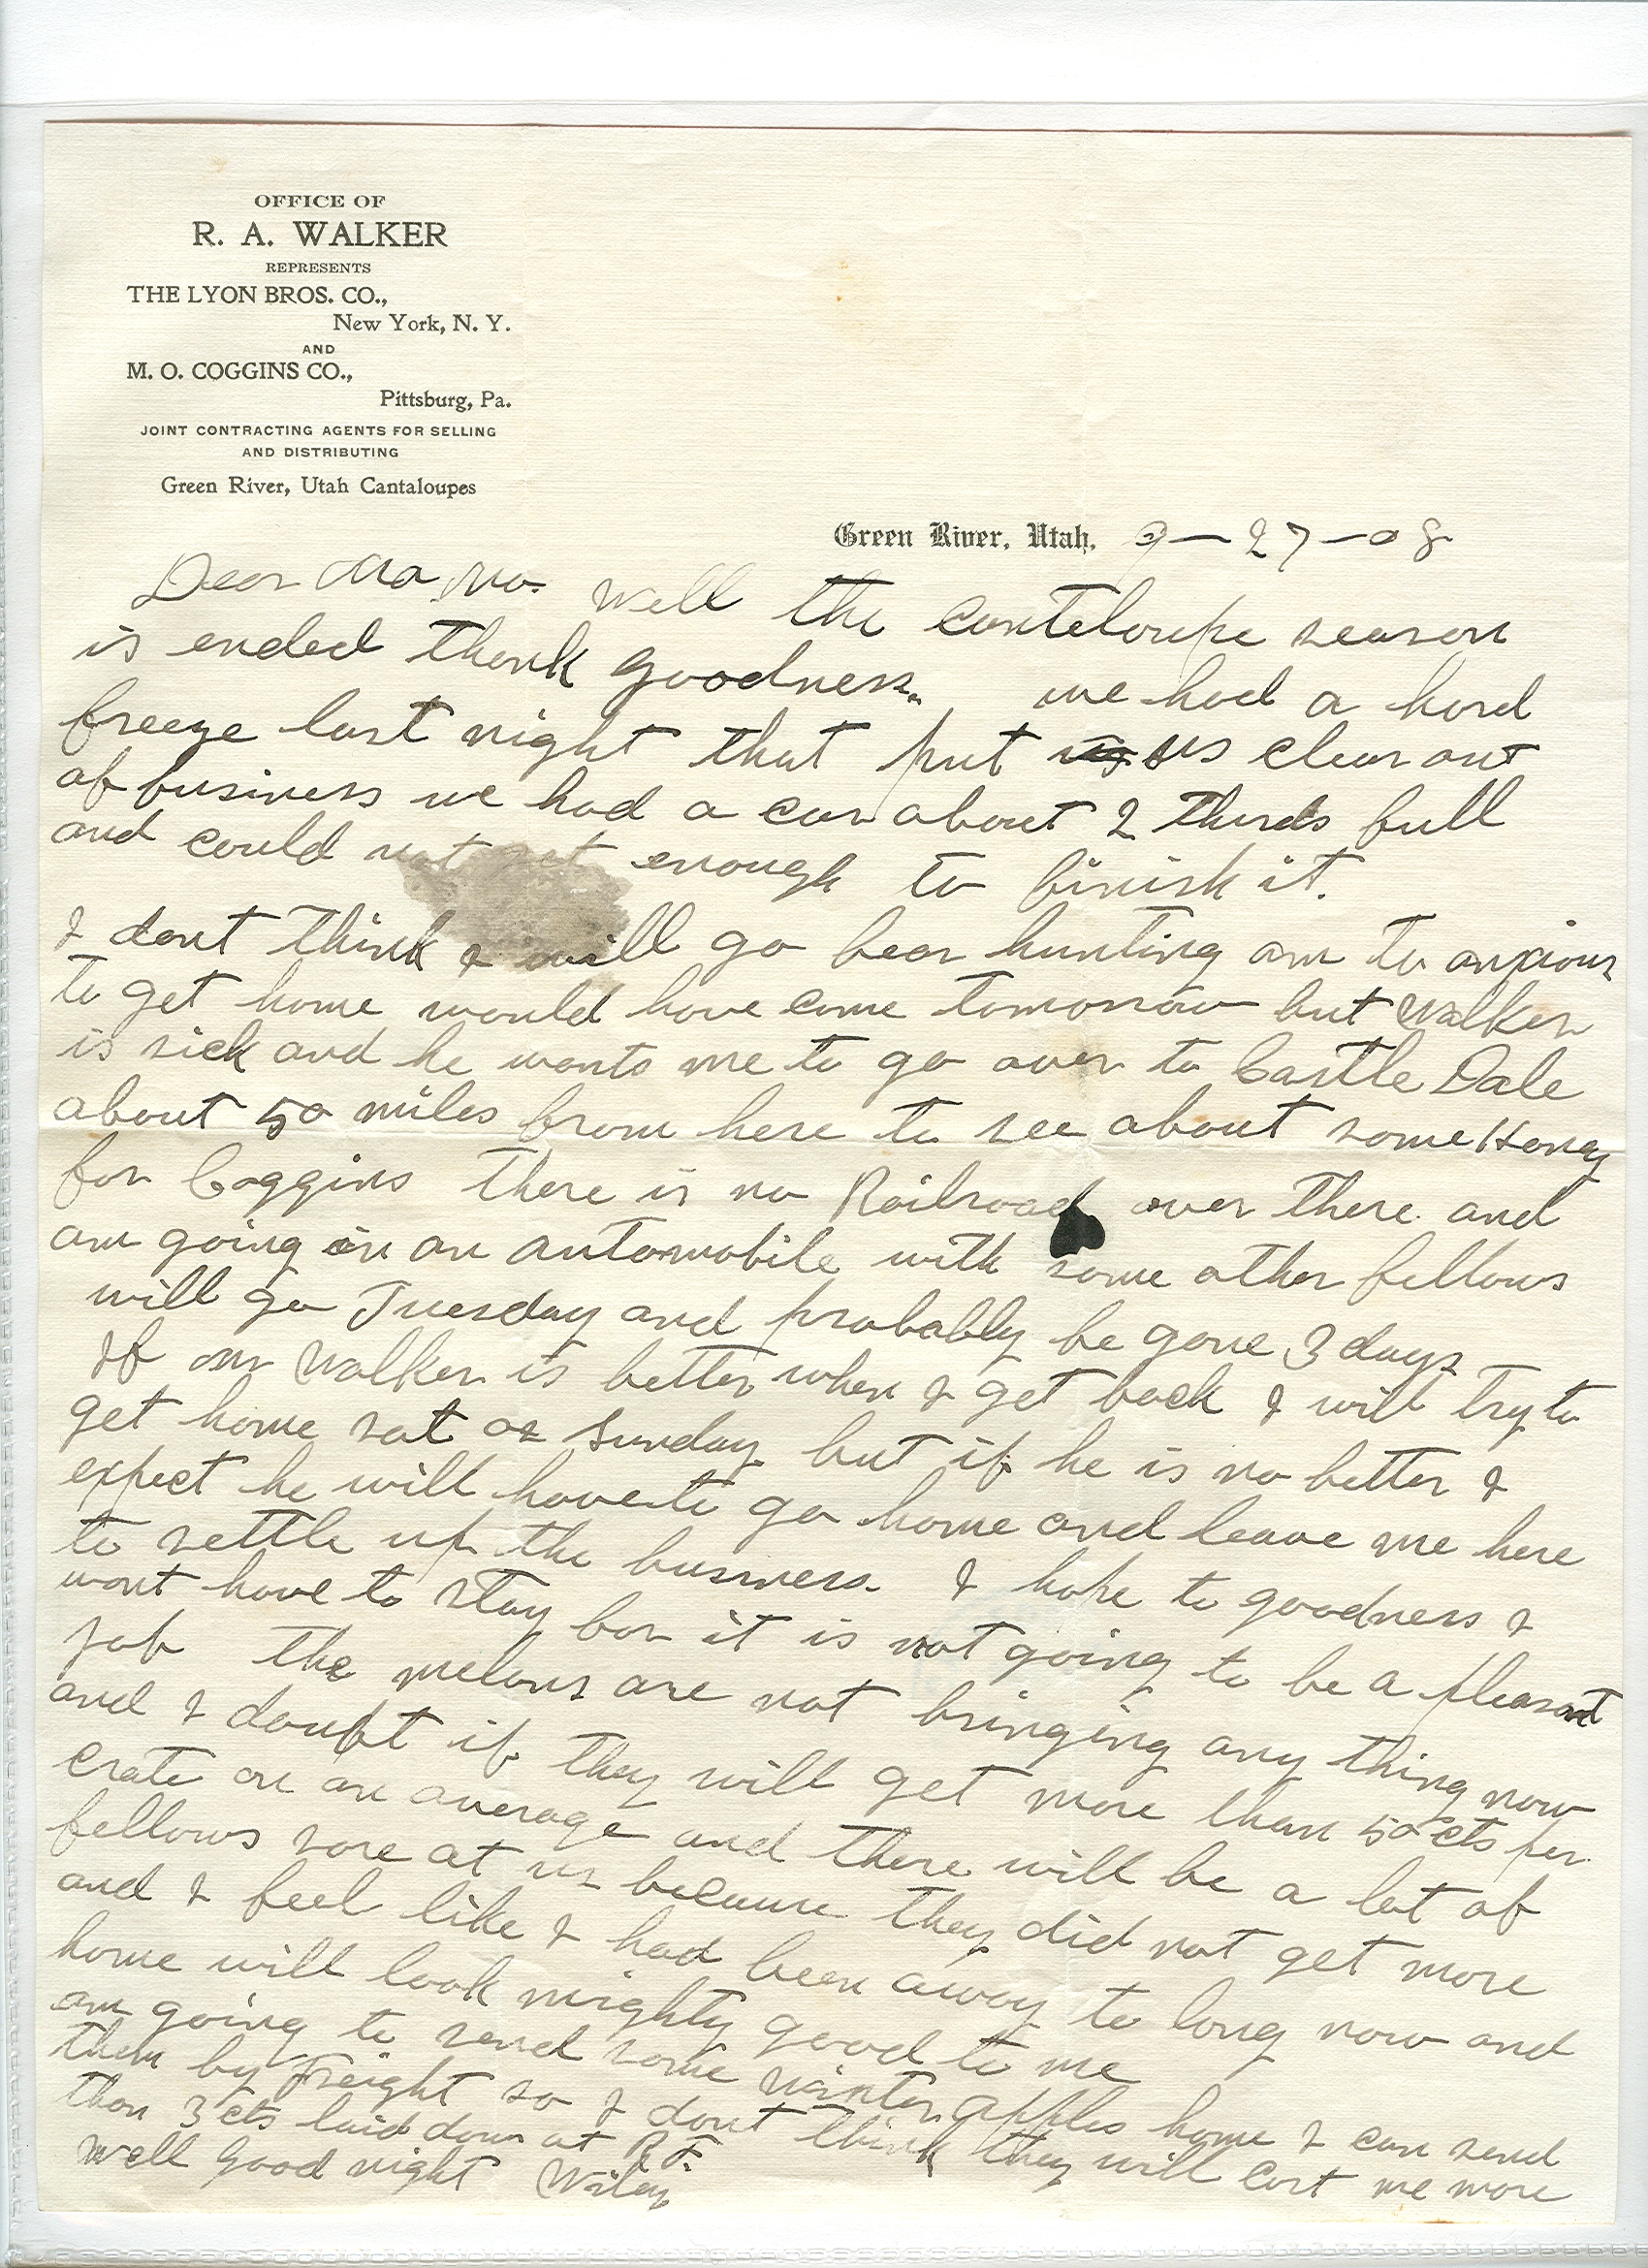 OFFICE OF
R. A. WALKER
REPRESENTS
THE LYON BROS. CO.,
New York, N. Y.
AND
M. O. COGGINS CO.,
Pittsburg, Pa.
JOINT CONTRACTING AGENTS FOR SELLING
AND DISTRIBUTING
Green River, Utah Cantaloupes
Green River, Utah, 9-27-08
Dear Ma, well the canteloupe season
is ended thank goodness. we had a hard
freeze last night that put us clear out
of business we had a car about 2 thirds full
and could not get enough to finish it.
I dont think I will go bear hunting am to anxious
to get home would have come tomorrow but Walker
is sick and he wants me to go over to Castle Dale
about 50 miles from here to see about some Honey
for Coggins There is no Railroad over there and
am going in an automobile with some other fellows
will go Tuesday and probably be gone 3 days
If Mr Walker is better when I get back I will try to
get home sat or Sunday but if he is no better I
expect he will have to go home and leave me here
to settle up the business. I hope to goodness I
wont have to stay for it is not going to be a pleasant
job The melons are not bringing any thing now
and I doubt if they will get more than 50 cts per
crate on an average and there will be a lot of
fellows sore at us because they did not get more
and I feel like I had been away to long now and
home will look mighty good to me
am going to send some winter apples home I can send
them by Freight so I dont think they will cost me more
than 3 cts laid down at R F.
Well good night Wiley